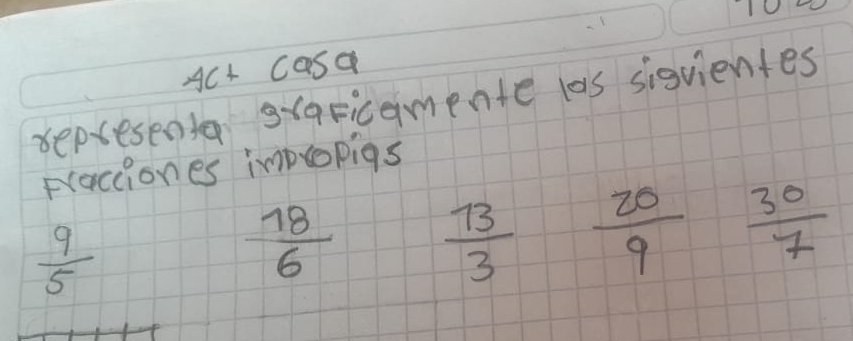 Act casa
representa graficamente las siguientes
Fracciones impropias
9/5 18/6 13/3 20/9 30/7